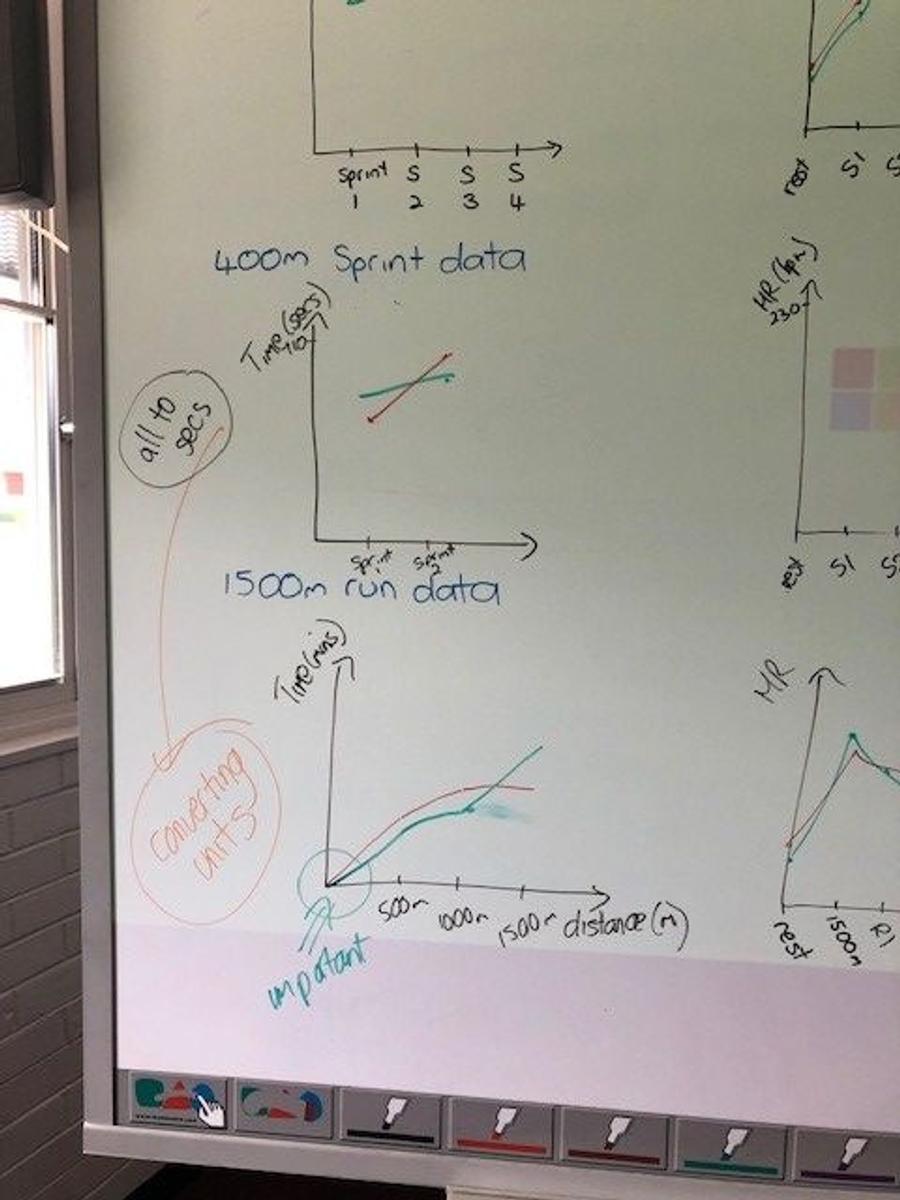 Sprint S S S
1 2 3 4
rest S1
400m Sprint data
Time (secs)
HR (bpm)
230
all to
secs
Sprint Sprint
2
rest S1
1500m run data
Time (mins)
HR
converting
units
500m 1000m 1500m distance (m)
important
rest 1500m R1